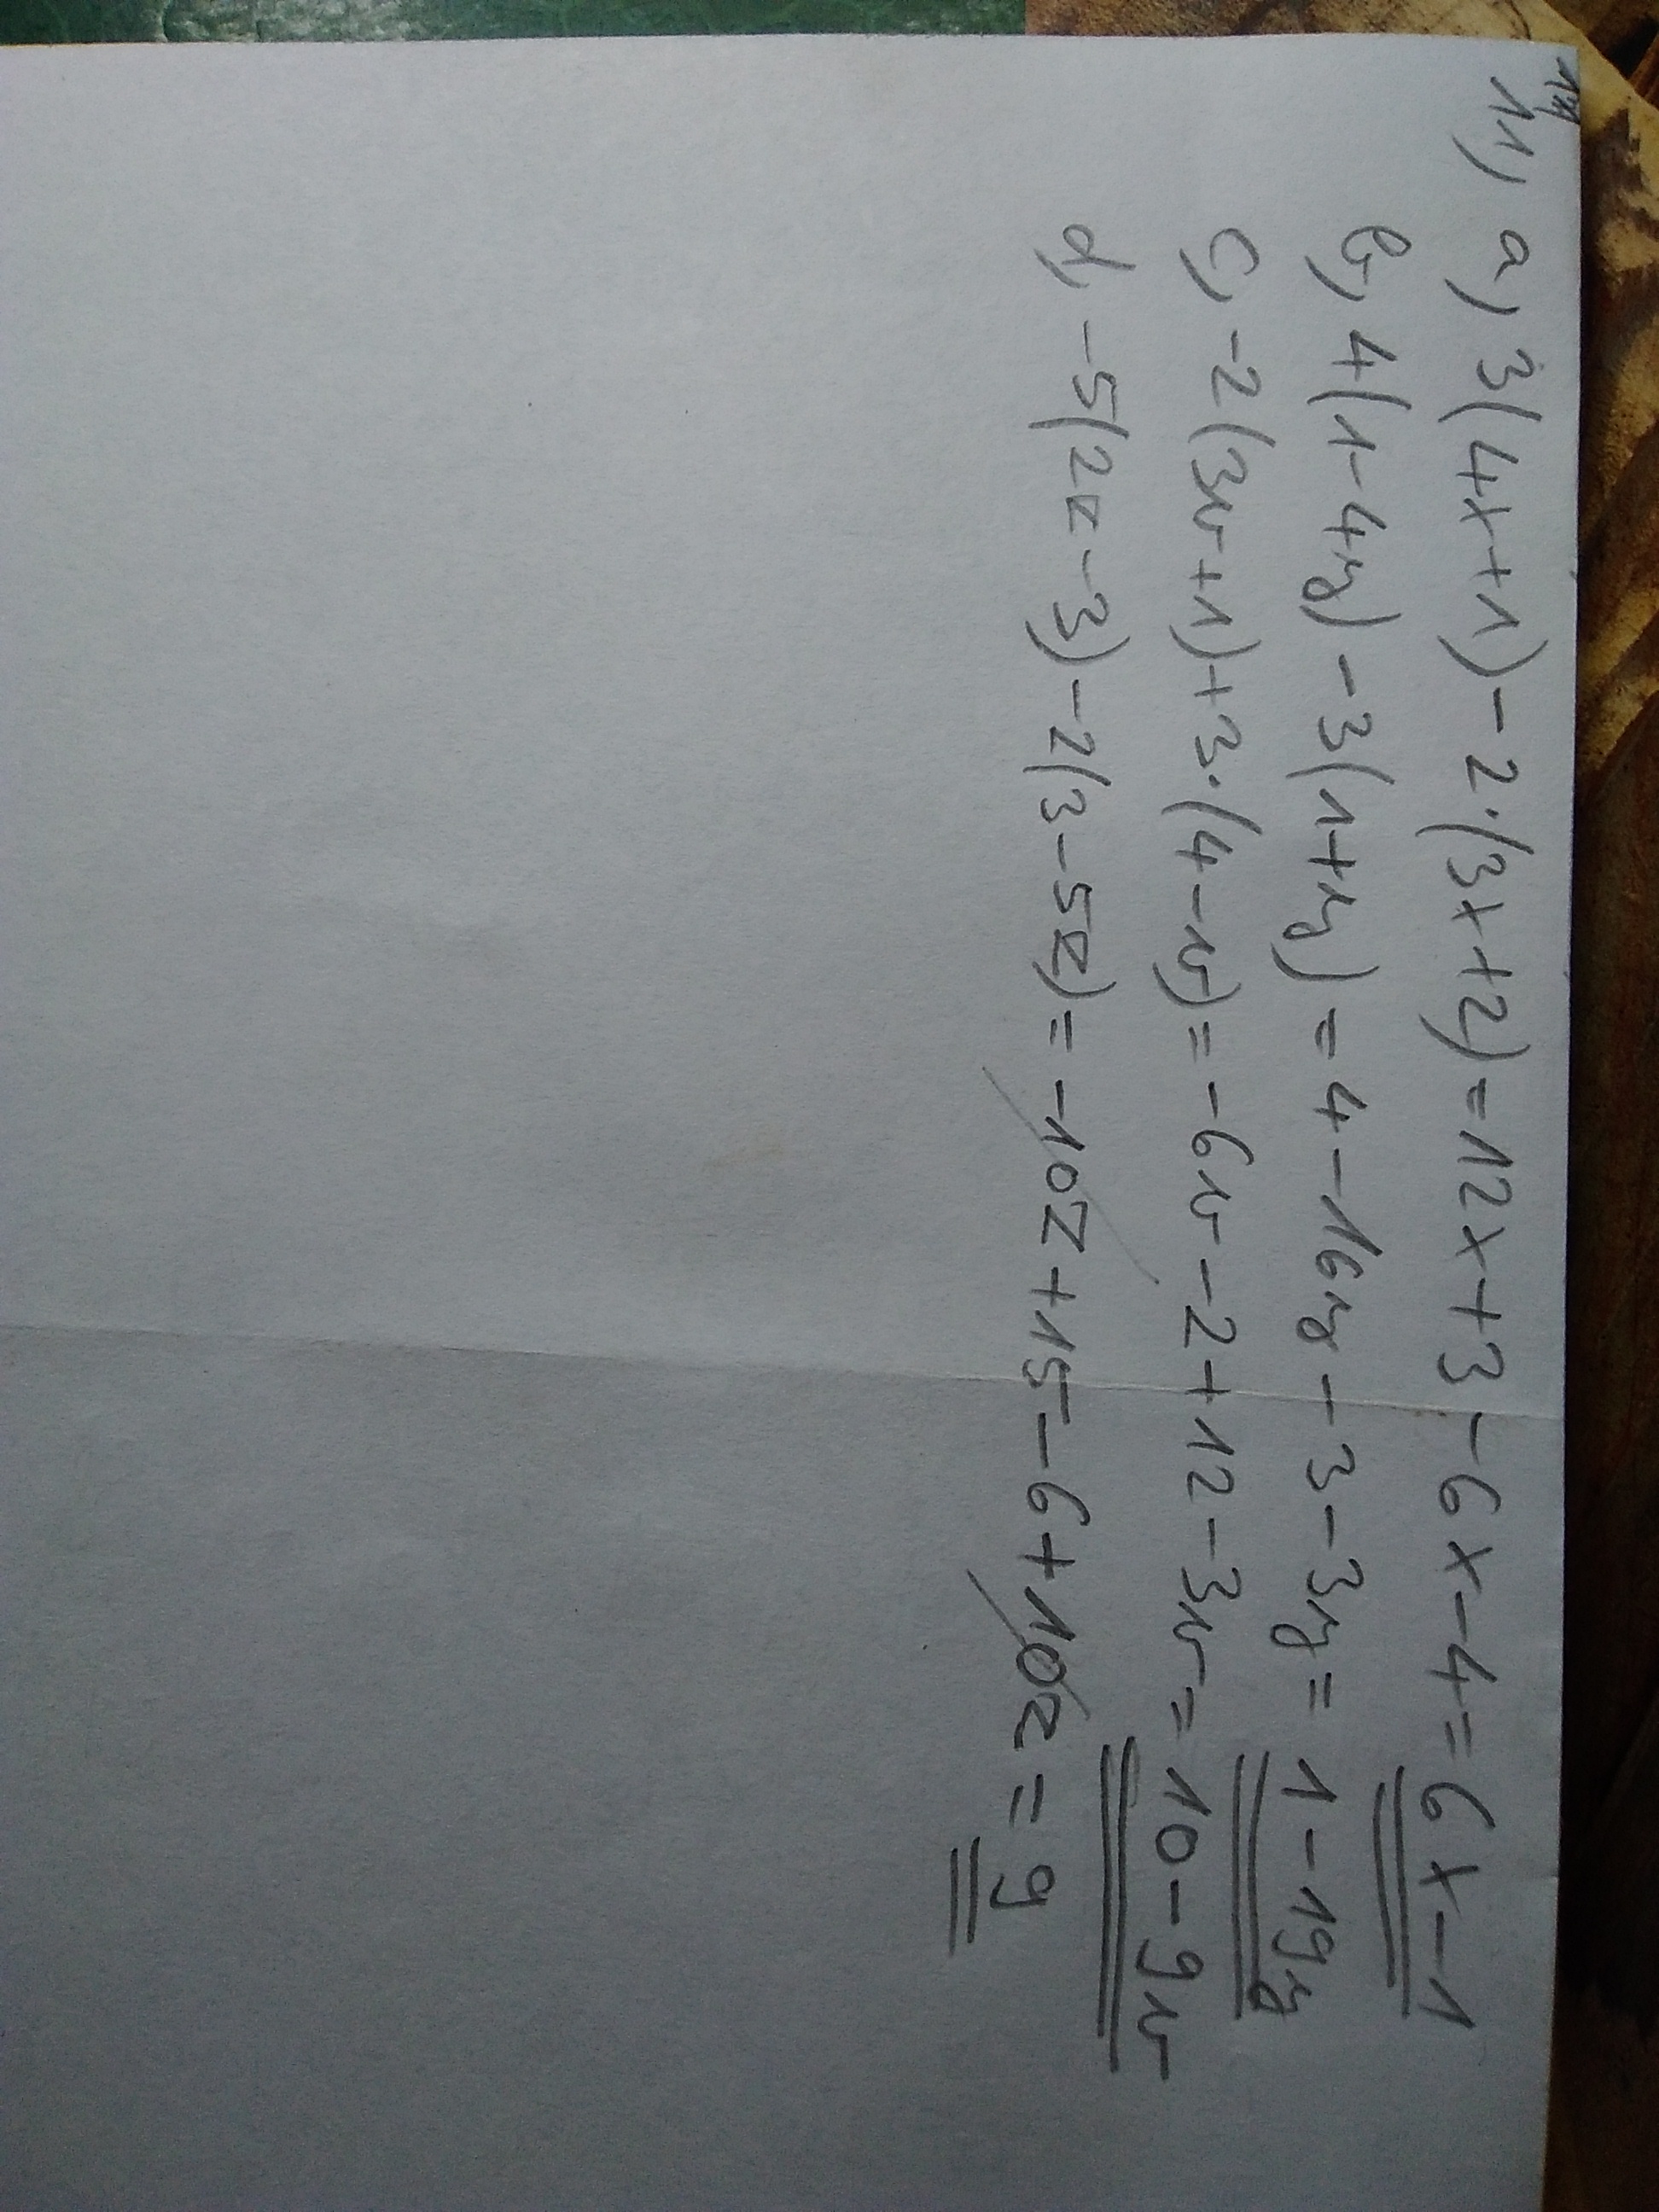 11, a, 3(4x+1)-2·(3x+2)=12x+3-6x-4=6x-1
b, 4(1-4y)-3(1+y)=4-16y-3-3y=1-19y
c, -2(3v+1)+3·(4-v)=-6v-2+12-3v=10-9v
d, -5(2z-3)-2(3-5z)=-10z+15-6+10z=9